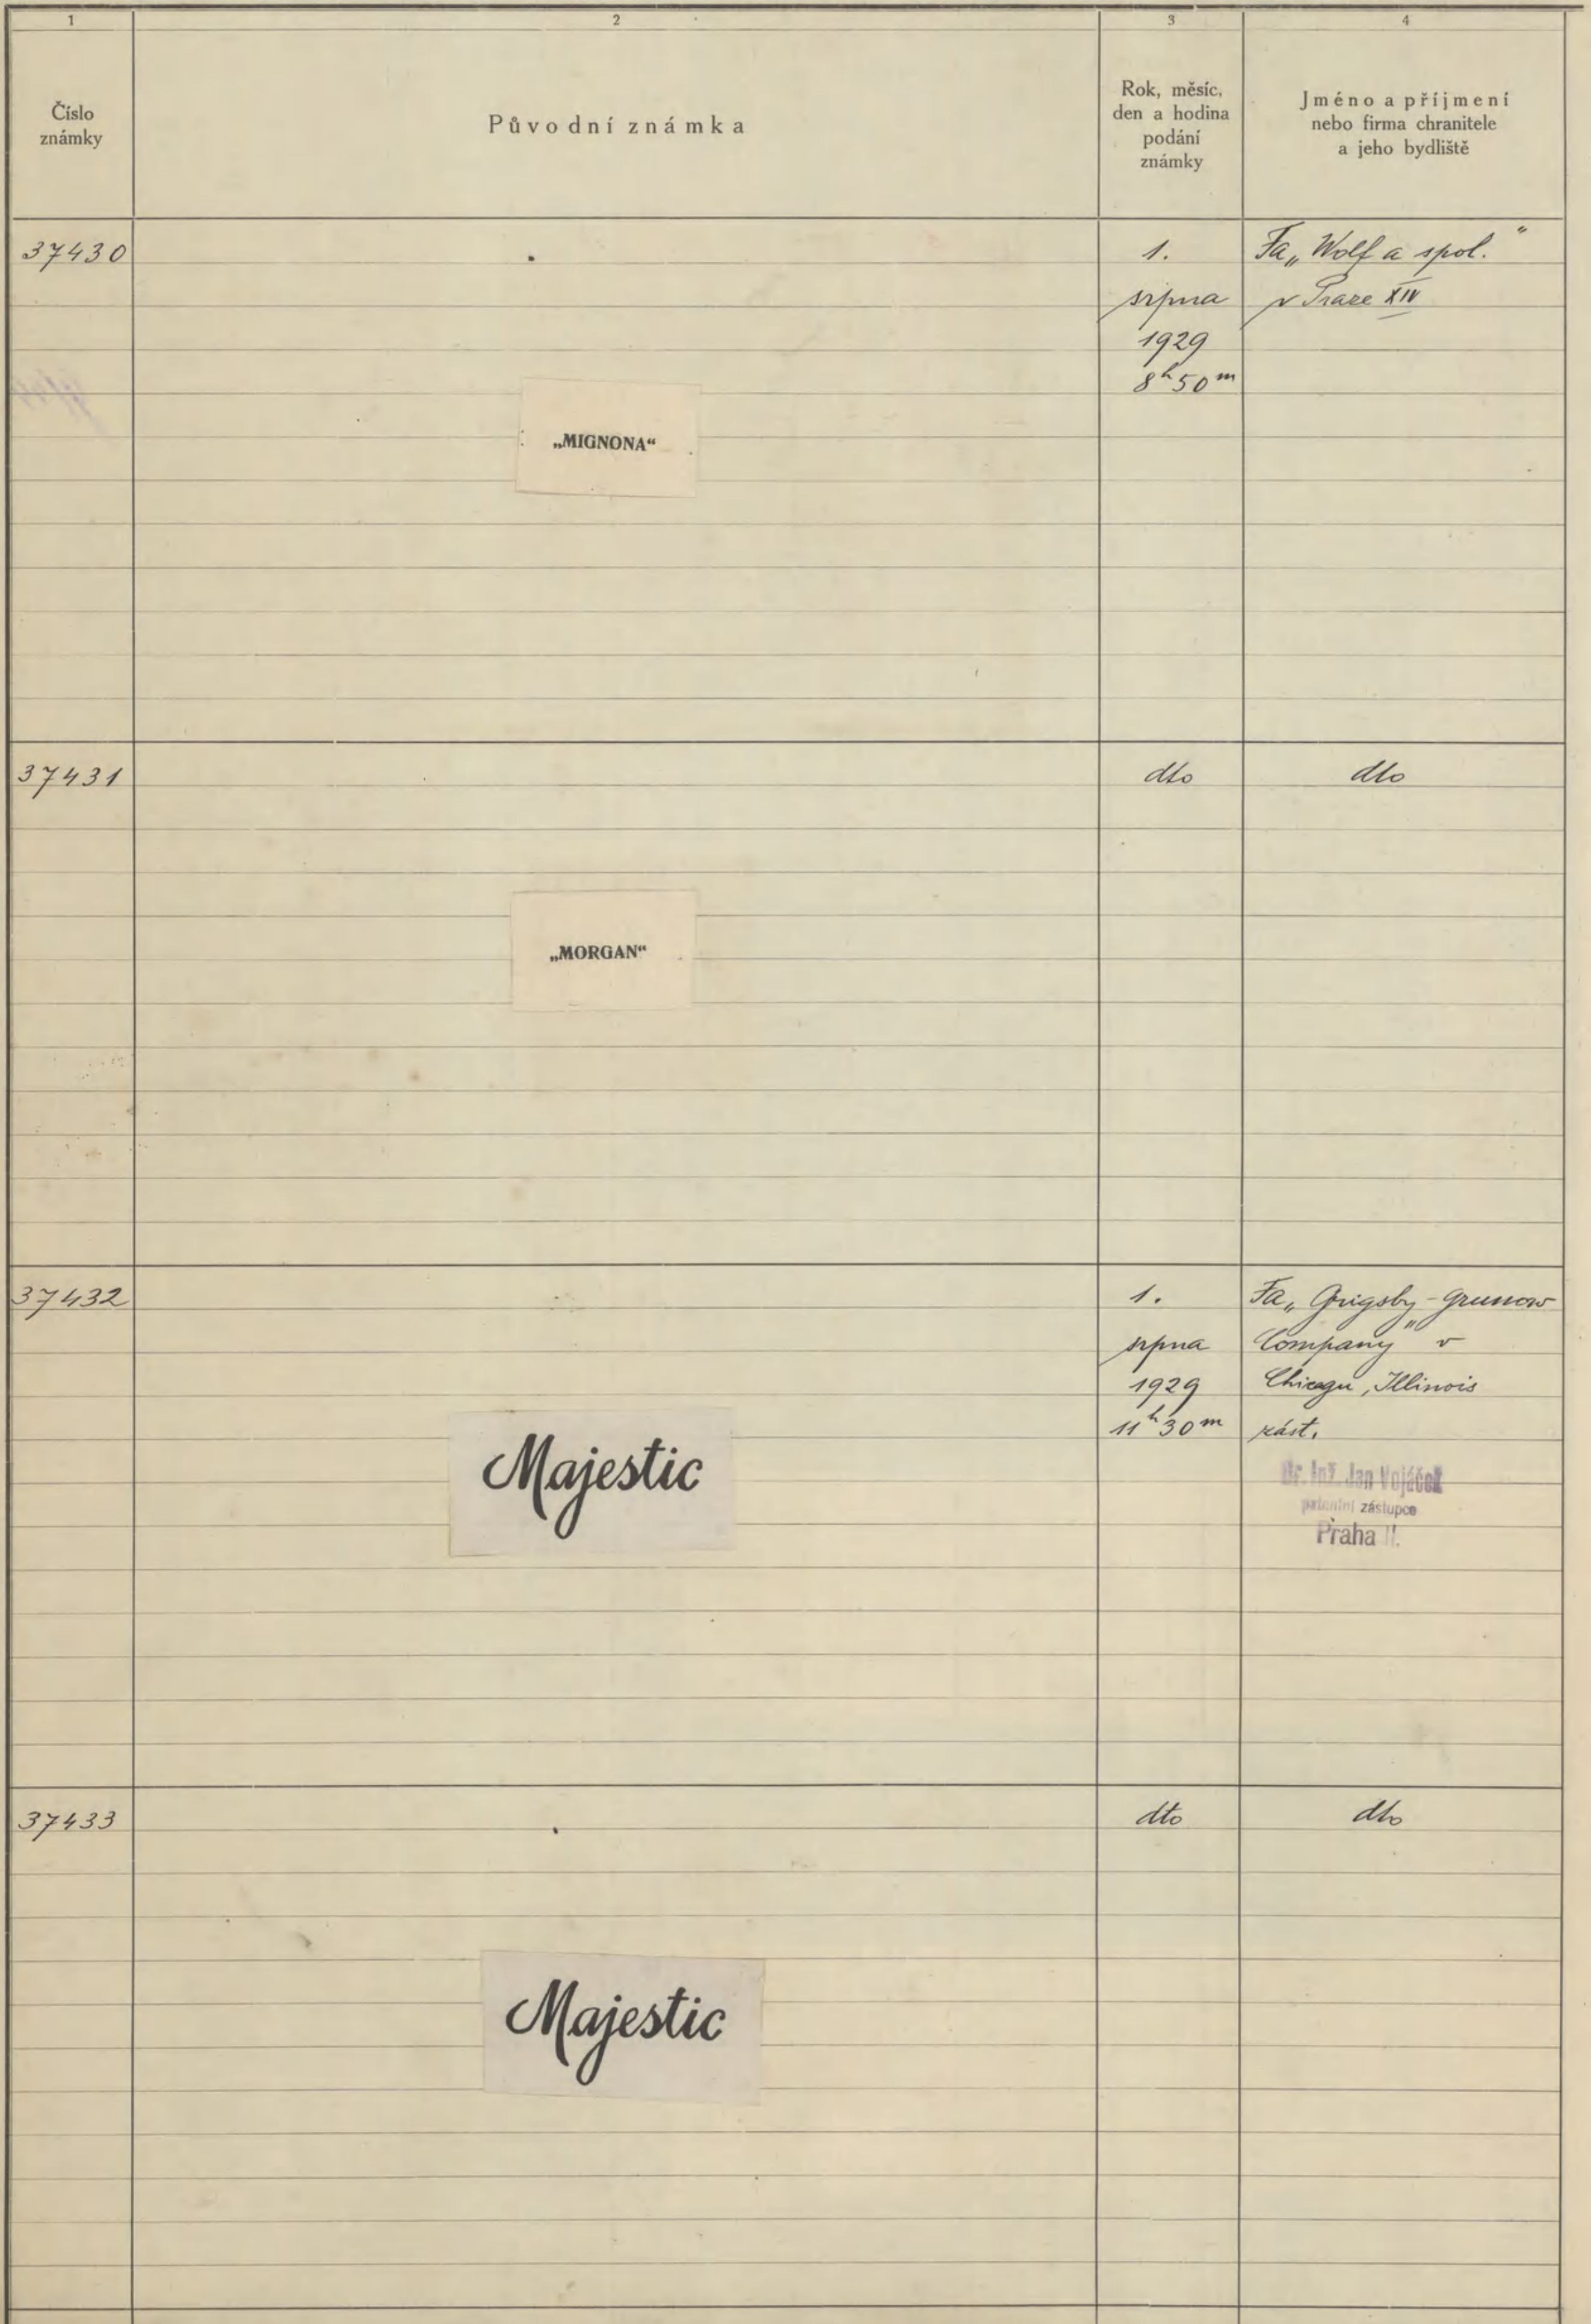 1
2
3
4
Číslo
známky
Původní známka
Rok, měsíc,
den a hodina
podání
známky
Jméno a příjmení
nebo firma chranitele
a jeho bydliště
37430
1.
srpna
1929
8h 50m
Fa „Wolf a spol."
v Praze XIV
„MIGNONA“
37431
dto
dto
„MORGAN“
37432
1.
srpna
1929
11h 30m
Fa „Grigsby-Grunow
Company" v
Chicagu, Illinois
zást.
Dr. Inž. Jan Vojáček
patentní zástupce
Praha II.
Majestic
37433
dto
dto
Majestic